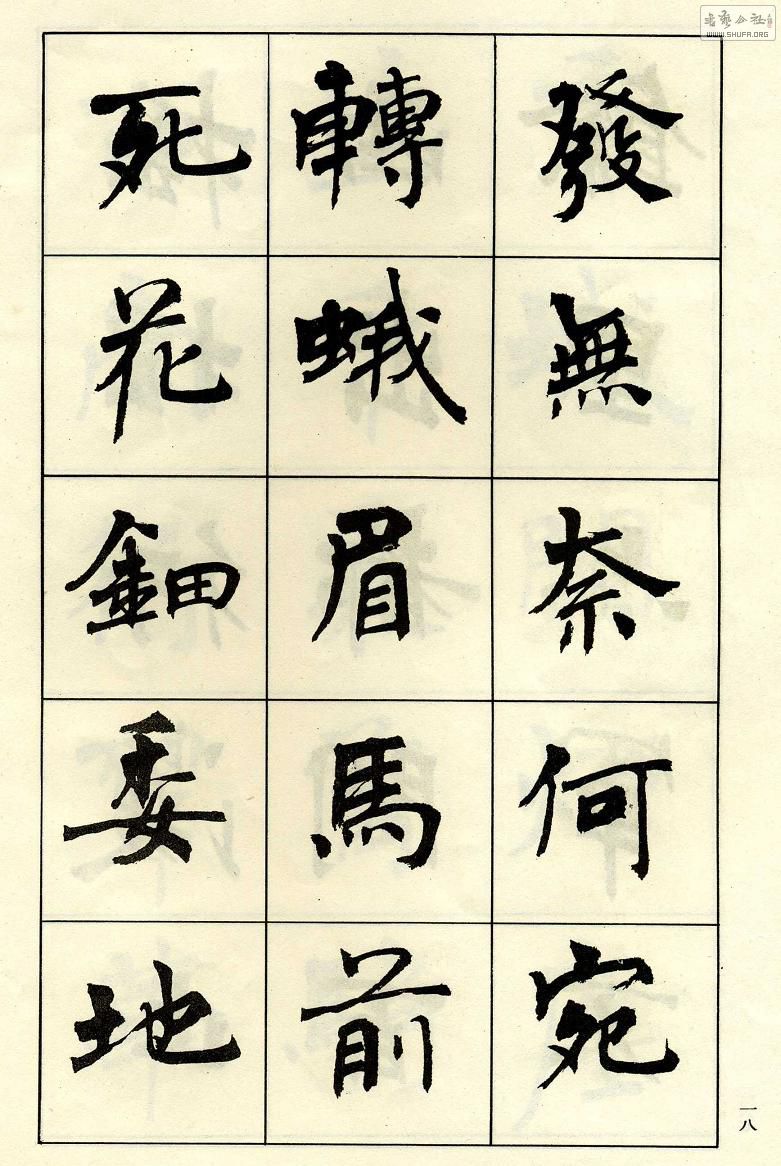 發無奈何宛
轉蛾眉馬前
死花鈿委地
一八
書藝公社
WWW.SHUFA.ORG